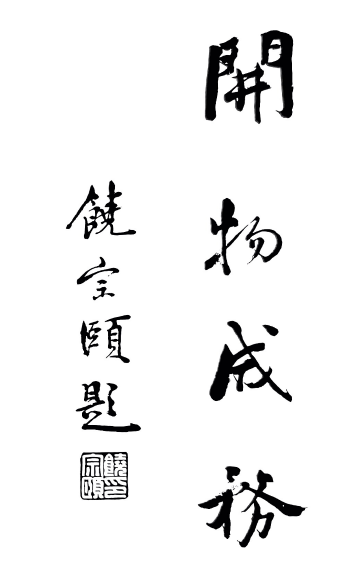 開物成務
饒宗頤題
饒宗頤印